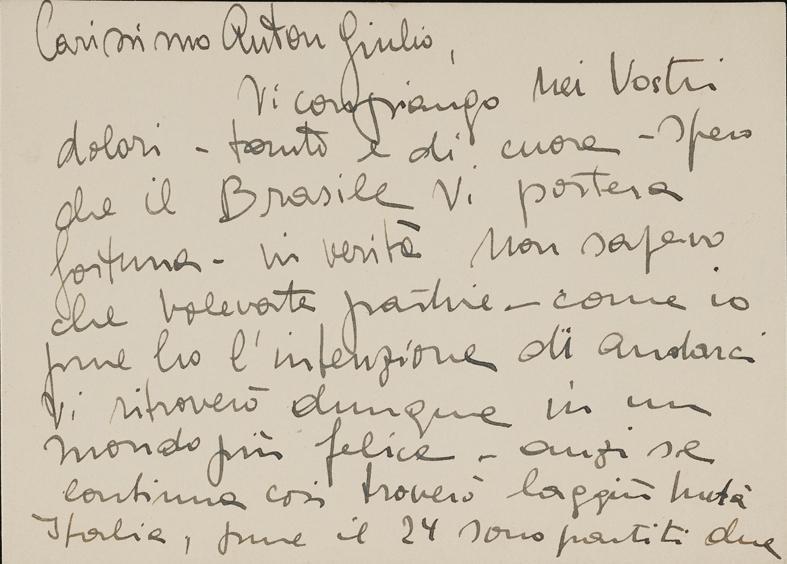 Carissimo Anton Giulio,
Vi compiango nei Vostri
dolori - tanto e di cuore - Spero
che il Brasile Vi portera
fortuna - in verità non sapevo
che volevate partire - come io
pure ho l'intenzione di andarci
Vi ritroverò dunque in un
mondo più felice - anzi se
continua così troverò laggiù mutà
Italia, pure il 24 sono partiti due